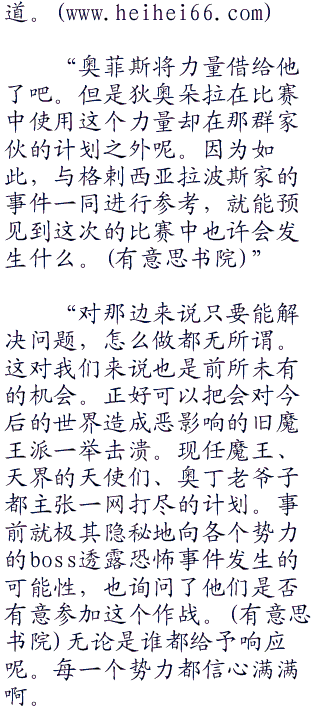 道。(www.heihei66.com)
“奥菲斯将力量借给他
了吧。但是狄奥朵拉在比赛
中使用这个力量却在那群家
伙的计划之外呢。因为如
此，与格剌西亚拉波斯家的
事件一同进行参考，就能预
见到这次的比赛中也许会发
生什么。(有意思书院)”
“对那边来说只要能解
决问题，怎么做都无所谓。
这对我们来说也是前所未有
的机会。正好可以把会对今
后的世界造成恶影响的旧魔
王派一举击溃。现任魔王、
天界的天使们、奥丁老爷子
都主张一网打尽的计划。事
前就极其隐秘地向各个势力
的boss透露恐怖事件发生的
可能性，也询问了他们是否
有意参加这个作战。(有意思
书院)无论是谁都给予响应
呢。每一个势力都信心满满
啊。